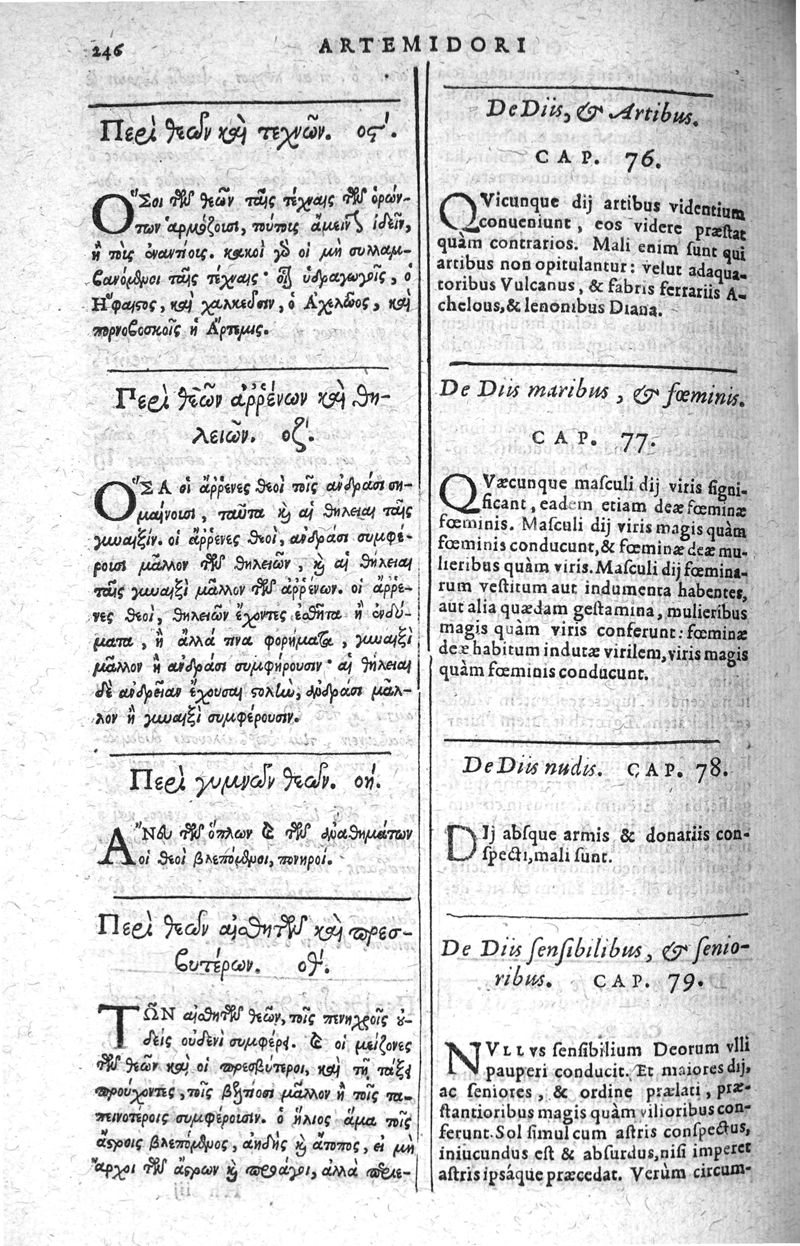 246
ARTEMIDORI
Περὶ θεῶν καὶ τεχνῶν. οϛ′.
ΟΣοι τῶν θεῶν ταῖς τέχναις τῶν ὁρών-
των ἁρμόζουσι, τούτοις ἄμεινον ἰδεῖν,
ἢ τοῖς ἐναντίοις. κακοὶ γὰρ οἱ μὴ συλλαμ-
βανόμενοι ταῖς τέχναις· οἷον ὑδραγωγοῖς, ὁ
Ηφαιστος, καὶ χαλκεῦσιν, ὁ Αχελῶος, καὶ
πορνοβοσκοῖς ἡ Αρτεμις.
Περὶ θεῶν ἀῤῥένων καὶ θη-
λειῶν. οζ′.
ΟΣΑ οἱ ἄῤῥενες θεοὶ τοῖς ἀνδράσι ση-
μαίνουσι, ταῦτα καὶ αἱ θήλειαι ταῖς
γυναιξίν. οἱ ἄῤῥενες θεοὶ, ἀνδράσι συμφέ-
ρουσι μᾶλλον τῶν θηλειῶν, καὶ αἱ θήλειαι
ταῖς γυναιξὶ μᾶλλον τῶν ἀῤῥένων. οἱ ἄῤῥε-
νες θεοὶ, θηλειῶν ἔχοντες ἐσθῆτα ἢ ἐνδύ-
ματα, ἢ ἄλλά τινα φορήματα, γυναιξὶ
μᾶλλον ἢ ἀνδράσι συμφήρουσιν· αἱ θήλειαι
δὲ ἀνδρείαν ἔχουσαι στολὴν, ἀνδράσι μᾶλ-
λον ἢ γυναιξὶ συμφέρουσιν.
Περὶ γυμνῶν θεῶν. οή.
ΑΝευ τῶν ὅπλων καὶ τῶν ἀναθημάτων
οἱ θεοὶ βλεπόμενοι, πονηροί.
Περὶ θεῶν αἰσθητῶν καὶ πρεσ-
βυτέρων. οθ′.
ΤΩΝ αἰσθητῶν θεῶν, τοῖς πενιχροῖς οὐ-
δεὶς οὐδενὶ συμφέρει. καὶ οἱ μείζονες
τῶν θεῶν καὶ οἱ πρεσβύτεροι, καὶ τῇ τάξει
προύχοντες, τοῖς βελτίοσι μᾶλλον ἢ τοῖς τα-
πεινοτέροις συμφέρουσιν. ὁ ἥλιος ἅμα τοῖς
ἀστροις βλεπόμενος, ἀηδὴς καὶ ἄτοπος, εἰ μὴ
ἄρχοι τῶν ἄστρων καὶ προάγοι, ἀλλὰ
De Diis, & Artibus.
CAP. 76.
QVicunque dij artibus videntium
conueniunt, eos videre præstat
quàm contrarios. Mali enim sunt qui
artibus non opitulantur: velut adaqua-
toribus Vulcanus, & fabris ferrariis A-
chelous, & lenonibus Diana.
De Diis maribus, & fœminis.
CAP. 77.
QVæcunque masculi dij viris signi-
ficant, eadem etiam deæ fœminæ
fœminis. Masculi dij viris magis quàm
fœminis conducunt, & fœminæ deæ mu-
lieribus quàm viris. Masculi dij fœmina-
rum vestitum aut indumenta habentes,
aut alia quædam gestamina, mulieribus
magis quàm viris conferunt: fœminæ
deæ habitum indutæ virilem, viris magis
quàm fœminis conducunt.
De Diis nudis. CAP. 78.
DIj absque armis & donariis con-
specti, mali sunt.
De Diis sensibilibus, & senio-
ribus. CAP. 79.
NVLLVS sensibilium Deorum vlli
pauperi conducit. Et maiores dij,
ac seniores, & ordine prælati, præ-
stantioribus magis quàm vilioribus con-
ferunt. Sol simul cum astris conspectus,
iniucundus est & absurdus, nisi imperet
astris ipsáque præcedat. Verùm circum-